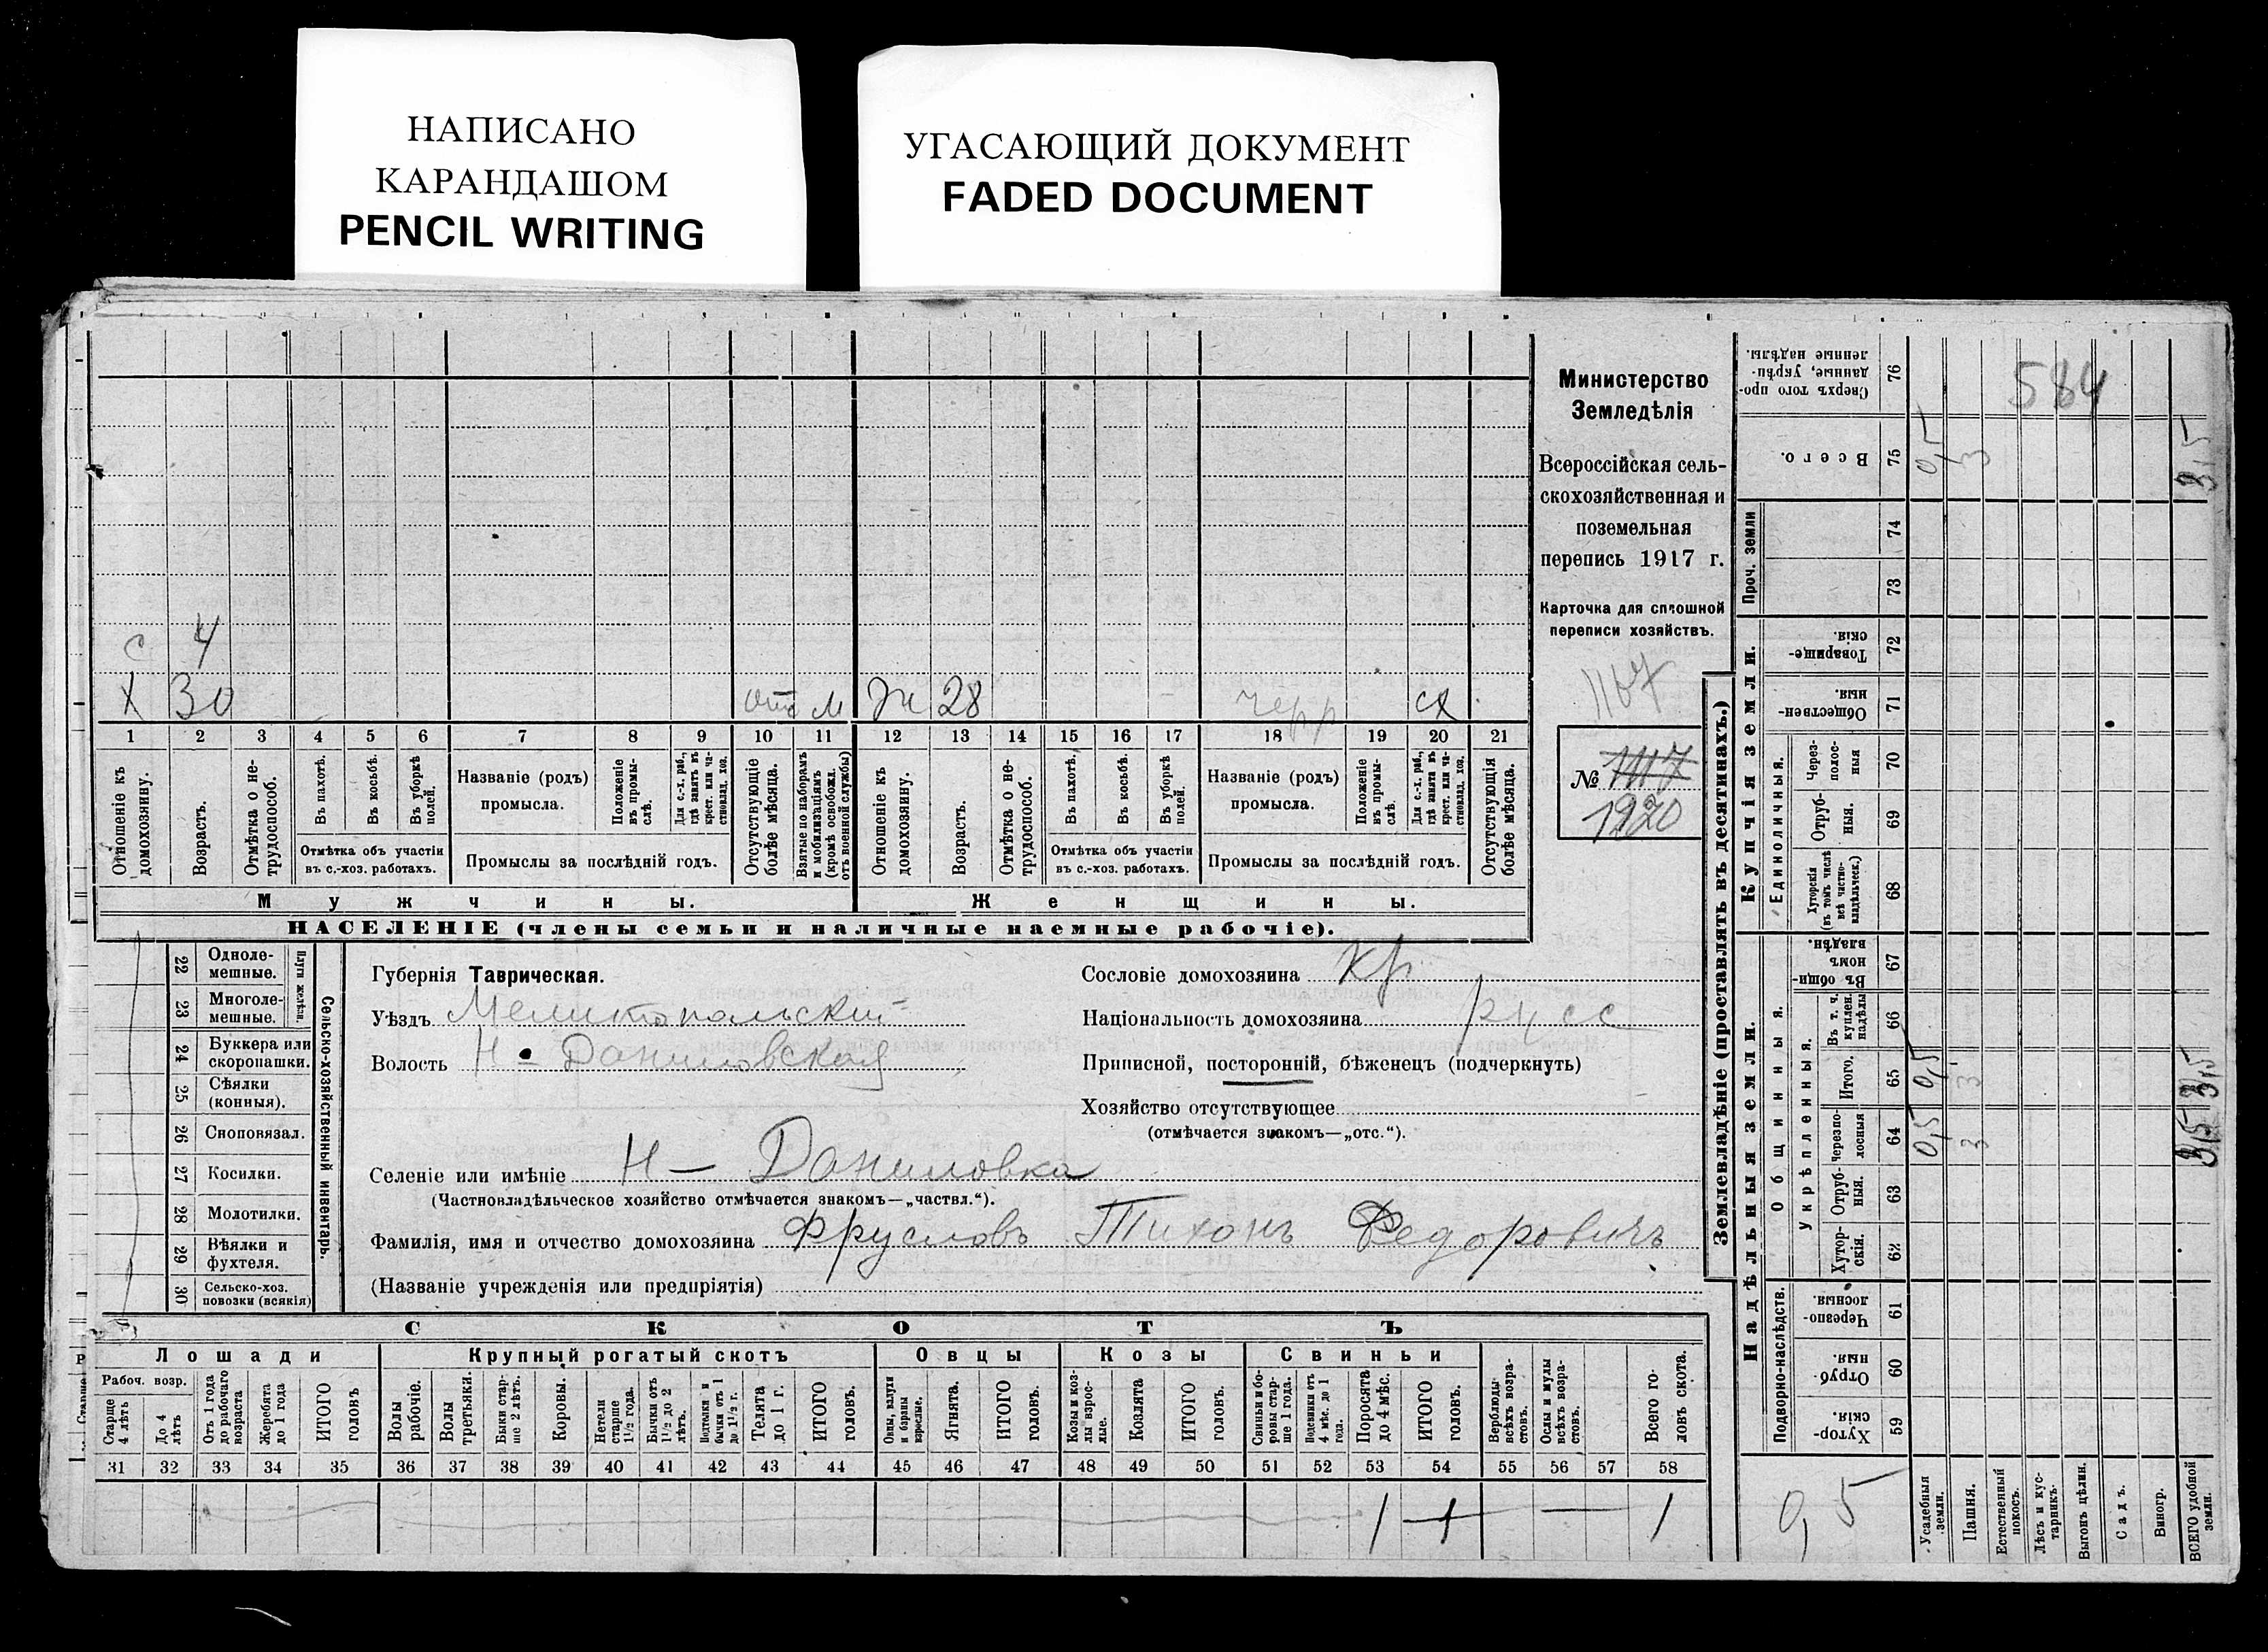 НАПИСАНО
КАРАНДАШОМ
PENCIL WRITING
УГАСАЮЩИЙ ДОКУМЕНТ
FADED DOCUMENT
Министерство
Земледѣлія
Всероссійская сель-
скохозяйственная и
поземельная
перепись 1917 г.
Карточка для сплошной
переписи хозяйствъ.
1167
№ 1117
1920
с 4
х 30 отс м ж 28 сх
1 2 3 4 5 6 7 8 9 10 11 12 13 14 15 16 17 18 19 20 21
Отношеніе къ домохозяину.
Возрастъ.
Отмѣтка о не-трудоспособ.
Въ пахотѣ.
Въ косьбѣ.
Въ уборкѣ полей.
Отмѣтка объ участіи
въ с.-хоз. работахъ.
Названіе (родъ)
промысла.
Положеніе въ промы-слѣ.
Для с.-х. раб., гдѣ занятъ въ крест. или ча-стновлад. хоз.
Промыслы за послѣдній годъ.
Отсутствующіе болѣе мѣсяца.
Взятые по наборамъ и мобилизаціямъ (кромѣ освобожд. отъ военной службы)
Отношеніе къ домохозяину.
Возрастъ.
Отмѣтка о не-трудоспособ.
Въ пахотѣ.
Въ косьбѣ.
Въ уборкѣ полей.
Отмѣтка объ участіи
въ с.-хоз. работахъ.
Названіе (родъ)
промысла.
Положеніе въ промы-слѣ.
Для с.-х. раб., гдѣ занята въ крест. или ча-стновлад. хоз.
Промыслы за послѣдній годъ.
Отсутствующія болѣе мѣсяца.
Мужчины.
Женщины.
НАСЕЛЕНІЕ (члены семьи и наличные наемные рабочіе).
22 Одноле-мешные.
23 Многоле-мешные.
Плуги желѣзн.
24 Буккера или скоропашки.
25 Сѣялки (конныя).
26 Сноповязал.
27 Косилки.
28 Молотилки.
29 Вѣялки и фухтеля.
30 Сельско-хоз. повозки (всякія)
Сельско-хозяйственный инвентарь.
Губернія Таврическая.
Уѣздъ Мелитопольскій
Волость Н-Даниловская
Селеніе или имѣніе Н-Даниловка
(Частновладѣльческое хозяйство отмѣчается знакомъ—„частвл.“).
Фамилія, имя и отчество домохозяина Фрусловъ Тихонъ Федоровичъ
(Названіе учрежденія или предпріятія)
Сословіе домохозяина кр
Національность домохозяина русс
Приписной, посторонній, бѣженецъ (подчеркнуть)
Хозяйство отсутствующее
(отмѣчается знакомъ—„отс.“).
СКОТЪ
Лошади
Крупный рогатый скотъ
Овцы
Козы
Свиньи
Рабоч. возр.
Старше 4 лѣтъ
До 4 лѣтъ
Отъ 1 года до рабочаго возраста
Жеребята до 1 года
ИТОГО головъ
Волы рабочіе.
Волы третьяки.
Быки стар-ше 2 лѣтъ.
Коровы.
Нетели старше 1½ года.
Бычки отъ 1½ до 2 лѣтъ.
Подтелки и бычки отъ 1 до 1½ г.
Телята до 1 г.
ИТОГО головъ.
Овцы, валухи и бараны взрослые.
Ягнята.
ИТОГО головъ.
Козы и коз-лы взрос-лые.
Козлята
ИТОГО головъ.
Свиньи и бо-ровы стар-ше 1 года.
Подсвинки отъ 4 мѣс. до 1 года.
Поросята до 4 мѣс.
ИТОГО головъ.
Верблюды всѣхъ возра-стовъ.
Ослы и мулы всѣхъ возра-стовъ.
Всего го-ловъ скота.
31 32 33 34 35 36 37 38 39 40 41 42 43 44 45 46 47 48 49 50 51 52 53 54 55 56 57 58
1 1 1
Землевладѣніе (проставлять въ десятинахъ.)
Надѣльныя земли.
Купчія земли.
Проч. земли
Подворно-наслѣдств.
Общинныя.
Укрѣпленныя.
Единоличныя.
76 Сверхъ того про-данные, укрѣп-ленные надѣлы.
75 Всего.
74
73
72 Товарище-скія.
71 Обществен-ныя.
70 Через-полос-ныя
69 Отруб-ныя.
68 Хуторскія (въ томъ числѣ всѣ частно-владѣльческ.)
67 Въ общин-номъ владѣн.
66 Въ т. ч. куплен. надѣлы
65 Итого.
64 Черезпо-лосныя
63 Отруб-ныя.
62 Хутор-скія.
61 Черезпо-лосныя.
60 Отруб-ныя.
59 Хутор-скія.
584
0,5 3 3,5
0,5 3 3,5
0,5 3 3,5
0,5
Усадебныя земли.
Пашня.
Естественный покосъ.
Лѣсъ и кус-тарникъ.
Выгонъ цѣлин.
Садъ.
Виногр.
ВСЕГО удобной земли.